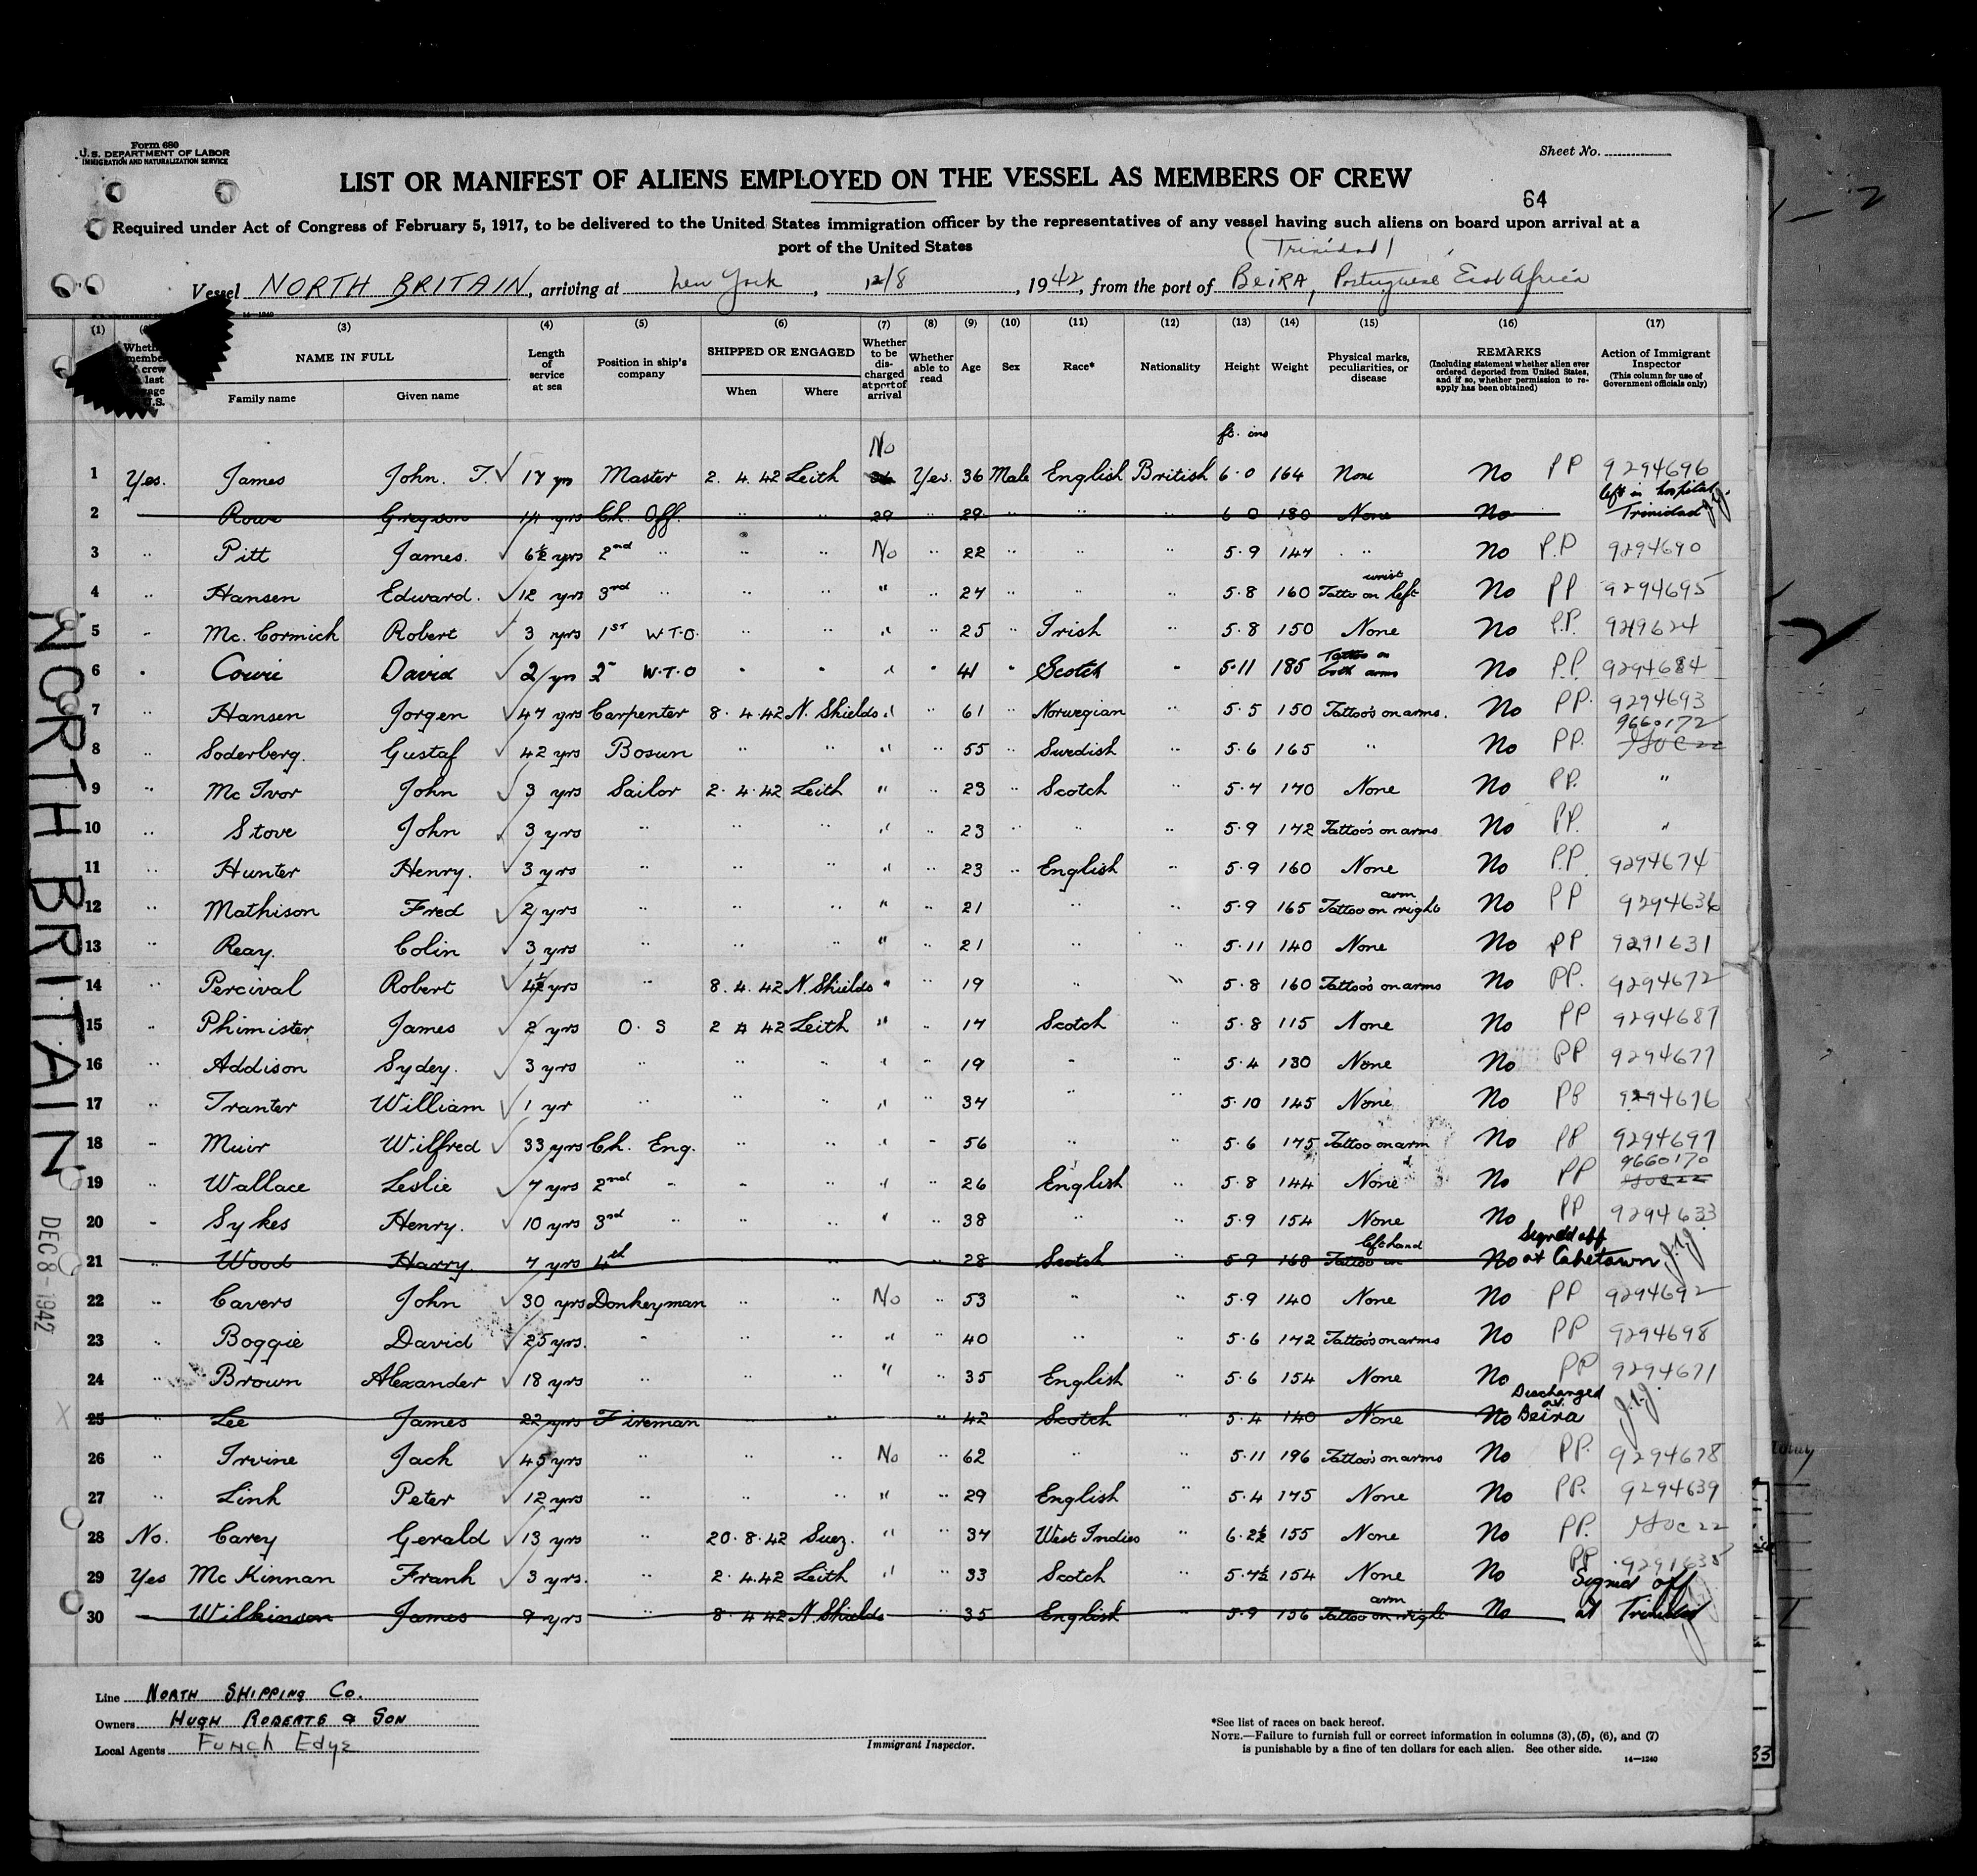 Form 680
U. S. DEPARTMENT OF LABOR
IMMIGRATION AND NATURALIZATION SERVICE
Sheet No.
LIST OR MANIFEST OF ALIENS EMPLOYED ON THE VESSEL AS MEMBERS OF CREW
64
Required under Act of Congress of February 5, 1917, to be delivered to the United States immigration officer by the representatives of any vessel having such aliens on board upon arrival at a
port of the United States
(Trinidad)
Vessel NORTH BRITAIN, arriving at New York, 12/8, 1942, from the port of BEIRA, Portuguese East Africa
(1) (3) (4) (5) (6) (7) (8) (9) (10) (11) (12) (13) (14) (15) (16) (17)
NAME IN FULL Family name Given name Length of service at sea Position in ship's company SHIPPED OR ENGAGED When Where Whether to be discharged at port of arrival Whether able to read Age Sex Race* Nationality Height Weight Physical marks, peculiarities, or disease REMARKS (Including statement whether alien ever ordered deported from United States, and if so, whether permission to reapply has been obtained) Action of Immigrant Inspector (This column for use of Government officials only)
No ft. ins
1 Yes. James John. T. ✓ 17 yrs Master 2. 4. 42 Leith Yes. 36 Male English British 6·0 164 None No PP 9294696
left in hospital
2 Rowe Gregson 14 yrs Ch. Off. " " 29 " 29 " " 6 0 180 None No Trinidad
3 " Pitt James. ✓ 6½ yrs 2nd " " " No " 22 " " 5·9 147 " No P.P 9294690
4 " Hansen Edward. ✓ 12 yrs 3rd " " " " " 24 " " " 5·8 160 Tatto on left wrist No PP 9294695
5 " Mc. Cormick Robert ✓ 3 yrs 1ST W.T.O. " " " " 25 " Irish 5·8 150 None No P.P.
6 " Cowie David ✓ 2 yrs 2" W.T.O " " " " 41 " Scotch " 5·11 185 Tattoo on both arms No P.P. 9294684
7 " Hansen Jorgen ✓ 47 yrs Carpenter 8. 4. 42 N. Shields " " 61 " Norwegian 5·5 150 Tattoo's on arms. No PP. 9294693
9660172
8 " Soderberg. Gustaf ✓ 42 yrs Bosun " " " " 55 " Swedish " 5·6 165 " No PP.
9 " Mc Ivor John ✓ 3 yrs Sailor 2. 4. 42 Leith " " 23 " Scotch " 5·7 170 None No PP. "
10 " Stove John ✓ 3 yrs " " " " " 23 " " " 5·9 172 Tattoo's on arms No PP. "
11 " Hunter Henry. ✓ 3 yrs " " " " " 23 " English " 5·9 160 None No P.P 9294674
12 " Mathison Fred ✓ 2 yrs " " " " " 21 " " 5·9 165 Tattoo on right arm No PP 9294636
13 " Reay. Colin ✓ 3 yrs " " " " " 21 " " 5·11 140 None No PP 9291631
14 " Percival Robert ✓ 4½ yrs " 8. 4. 42 N. Shields " " 19 " " 5·8 160 Tattoo's on arms No PP. 9294672
15 " Phimister James ✓ 2 yrs O. S 2 4 42 Leith " " 17 Scotch " 5·8 115 None No PP 9294687
16 " Addison Sydey. ✓ 3 yrs " " " " " 19 " " 5·4 130 None No PP 9294677
17 " Tranter William ✓ 1 yr " " " " 37 " " 5·10 145 None No PP 9294676
18 " Muir Wilfred ✓ 33 yrs Ch. Eng. " " " " 56 " " 5·6 175 Tattoo on arm No PP 9294697
9660170
19 " Wallace Leslie ✓ 7 yrs 2nd " " " " 26 English " 5·8 144 None No PP
20 " Sykes Henry. ✓ 10 yrs 3rd " " " " " 38 " " 5·9 154 None No PP 9294633
21 " Wood Harry. 7 yrs 4th " 28 Scotch " 5·9 168 Tattoo on left hand No Signed off at Capetown
22 " Cavers John ✓ 30 yrs Donkeyman " " No " 53 " " 5·9 140 None No PP 9294692
23 " Boggie David ✓ 25 yrs. " " " " " 40 " " 5·6 172 Tattoo's on arms No PP 9294698
24 " Brown Alexander ✓ 18 yrs " " " " " 35 English " 5·6 154 None No PP 9294671
25 Lee James 22 yrs Fireman " " " 42 Scotch " 5·4 140 None No Discharged at. Beira
26 " Irvine Jack ✓ 45 yrs " " " No " 62 " " 5·11 196 Tattoo's on arms No PP. 9294678
27 " Link Peter ✓ 12 yrs " " " " " 29 English " 5·4 175 None No PP. 9294639
28 No. Carey Gerald ✓ 13 yrs " 20·8·42 Suez. " " 37 West Indies " 6·2½ 155 None No PP.
29 Yes Mc Kinnan Frank ✓ 3 yrs. " 2. 4.42 Leith " " 33 Scotch " 5·7½ 154 None No PP 9291635
30 Wilkinson James 9 yrs " 8. 4 42 N. Shields " 35 English " 5·9 156 Tattoo on right arm No Signed off at Trinidad
NORTH BRITAIN
DEC 8 - 1942
Line NORTH SHIPPING CO.
Owners HUGH ROBERTS & SON
Local Agents Funch Edye
Immigrant Inspector.
*See list of races on back hereof.
NOTE.—Failure to furnish full or correct information in columns (3), (5), (6), and (7)
is punishable by a fine of ten dollars for each alien. See other side.
14—1240
33